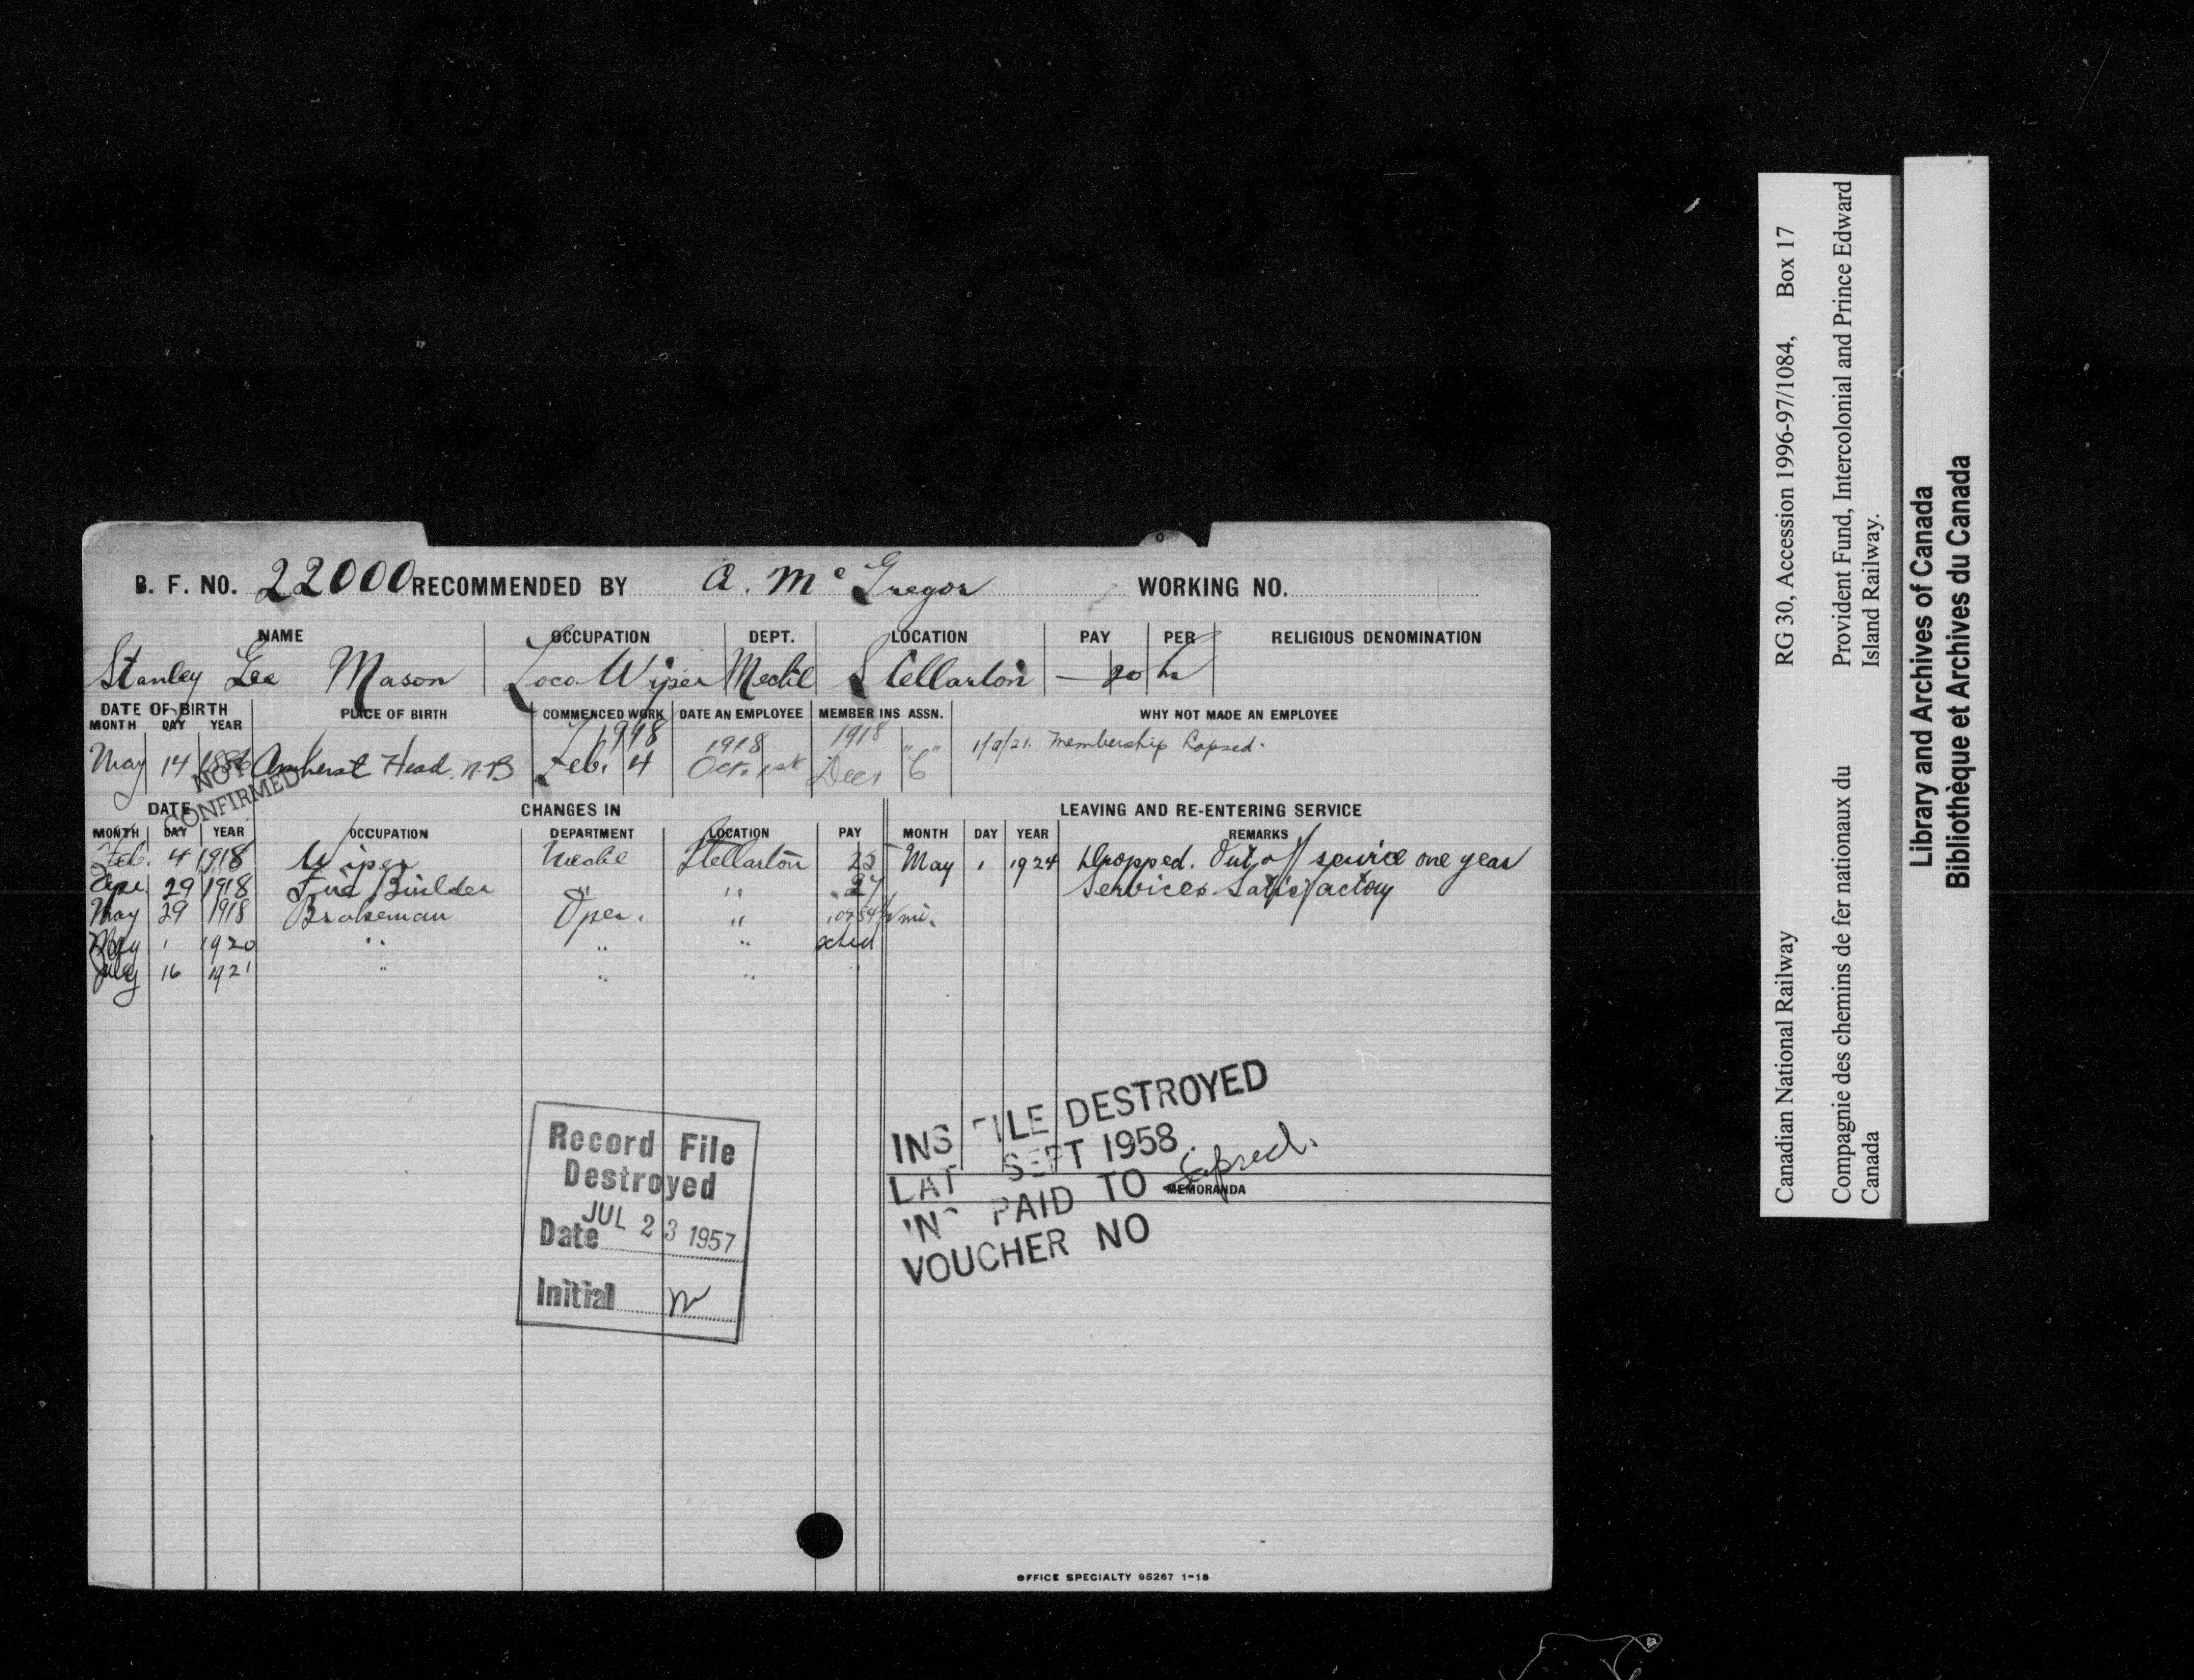 B. F. NO. 22000 RECOMMENDED BY A. McGregor WORKING NO.
NAME OCCUPATION DEPT. LOCATION PAY PER RELIGIOUS DENOMINATION
Stanley Lee Mason Loco Wiper Mechl Stellarton — 20 hr
DATE OF BIRTH
MONTH DAY YEAR PLACE OF BIRTH COMMENCED WORK DATE AN EMPLOYEE MEMBER INS ASSN. WHY NOT MADE AN EMPLOYEE
1918 1918 1918 1/9/21. Membership Lapsed.
May 14 1886 Amherst Head. N.B Feb. 4 Oct. 1st Decr "C"
NOT CONFIRMED
DATE CHANGES IN LEAVING AND RE-ENTERING SERVICE
MONTH DAY YEAR OCCUPATION DEPARTMENT LOCATION PAY MONTH DAY YEAR REMARKS
Feb. 4 1918 Wiper Mechl Stellarton 25 May 1 1924 Dropped. Out of service one year
Apr. 29 1918 Fire Builder " " .27 Services Satisfactory
May 29 1918 Brakeman Oper. " mi.
May 1 1920 " " " sched
July 16 1921 " " "
Record File
Destroyed
Date JUL 23 1957
Initial
INS FILE DESTROYED
SEPT 1958
LAT
INS PAID TO Lapsed.
VOUCHER NO
MEMORANDA
OFFICE SPECIALTY 95267 1-18
Canadian National Railway RG 30, Accession 1996-97/1084, Box 17
Compagnie des chemins de fer nationaux du Provident Fund, Intercolonial and Prince Edward
Canada Island Railway.
Library and Archives of Canada
Bibliothèque et Archives du Canada